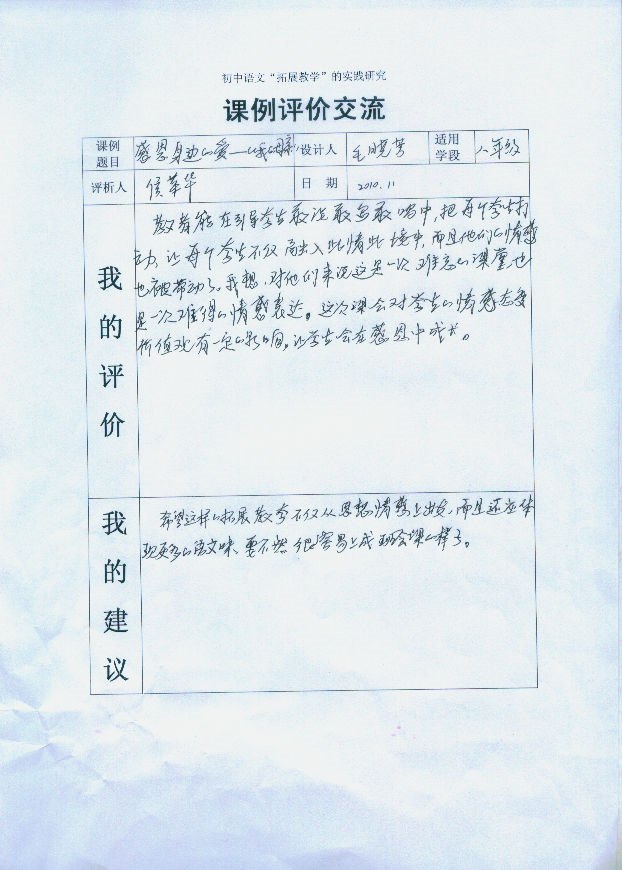 初中语文“拓展教学”的实践研究
课例评价交流
课例题目 感恩身边的爱——《我的 设计人 毛晓芳 适用学段 八年级
评析人 侯华华 日 期 2010.11
我的评价
教者能在引导学生敢说敢写敢唱中,把每个学生打
动,让每个学生不仅融入此情此境中,而且他们的情感
也被带动了。我想,对他们来说这是一次难忘的课堂,也
是一次难得的情感表达。这次课会对学生的情感态度
价值观有一定的影响,让学生会在感恩中成长。
我的建议
希望这样的拓展教学不仅从思想情感上出发,而且还应体
现更多的语文味,要不然很容易上成班会课的样子。